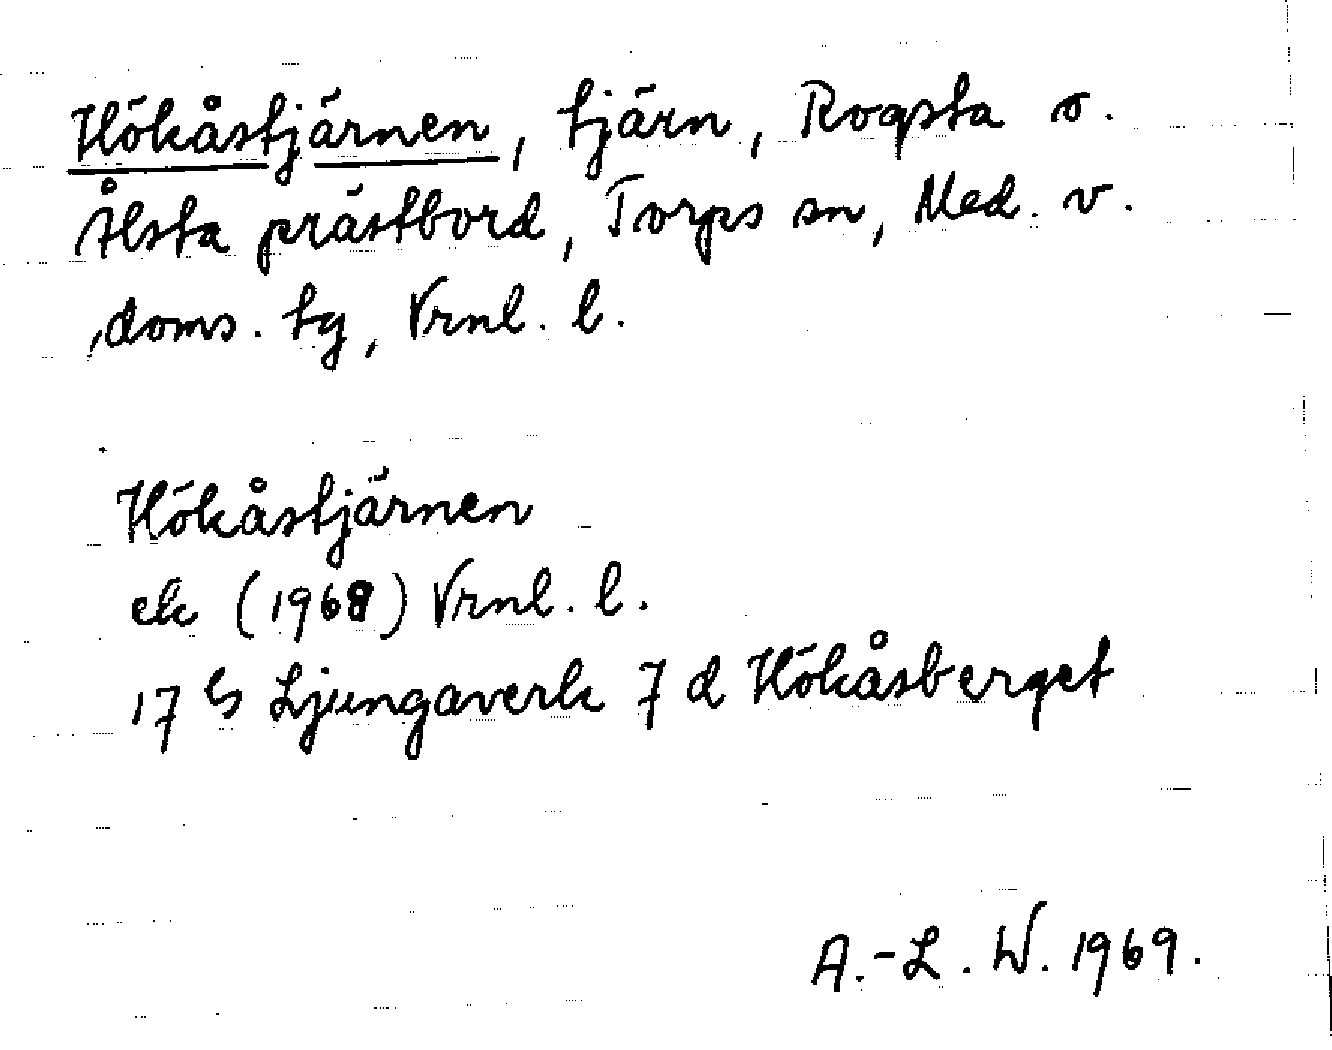 Hökåstjärnen, tjärn, Rogsta o.
Ålsta prästbord, Torps sn, Med. v.
doms. tg, Vrnl. l.
Hökåstjärnen
ek (1968) Vrnl. l.
17 G Ljungaverk 7 d Hökåsberget
A.-L. W. 1969.